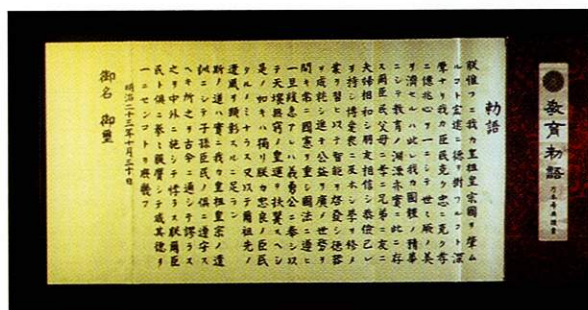 教育勅語
勅語
朕惟フニ我カ皇祖皇宗國ヲ肇ム
ルコト宏遠ニ德ヲ樹ツルコト深
厚ナリ我カ臣民克ク忠ニ克ク孝
ニ億兆心ヲ一ニシテ世々厥ノ美
ヲ濟セルハ此レ我カ國體ノ精華
ニシテ教育ノ淵源亦實ニ此ニ存
ス爾臣民父母ニ孝ニ兄弟ニ友ニ
夫婦相和シ朋友相信シ恭儉己レ
ヲ持シ博愛衆ニ及ホシ學ヲ修メ
業ヲ習ヒ以テ智能ヲ啓發シ德器
ヲ成就シ進テ公益ヲ廣メ世務ヲ
開キ常ニ國憲ヲ重シ國法ニ遵ヒ
一旦緩急アレハ義勇公ニ奉シ以
テ天壤無窮ノ皇運ヲ扶翼スヘシ
是ノ如キハ獨リ朕カ忠良ノ臣民
タルノミナラス又以テ爾祖先ノ
遺風ヲ顯彰スルニ足ラン
斯ノ道ハ實ニ我カ皇祖皇宗ノ遺
訓ニシテ子孫臣民ノ俱ニ遵守ス
ヘキ所之ヲ古今ニ通シテ謬ラス
之ヲ中外ニ施シテ悖ラス朕爾臣
民ト俱ニ拳々服膺シテ咸其德ヲ
一ニセンコトヲ庶幾フ
明治二十三年十月三十日
御名 御璽